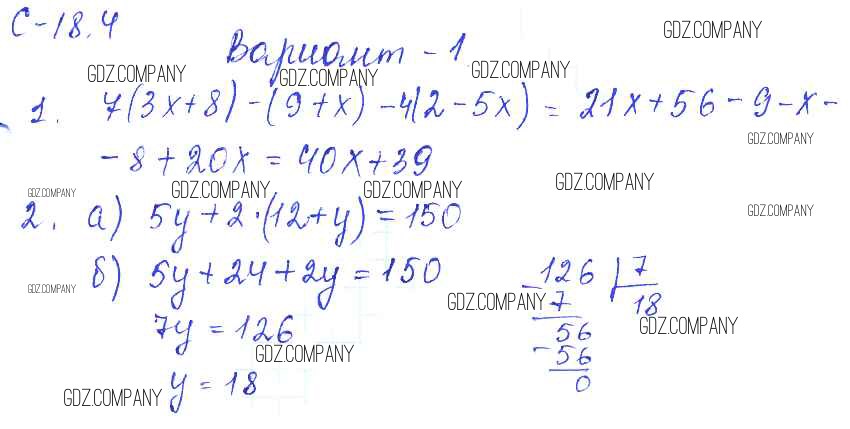 С-18.4
GDZ.COMPANY
Вариант - 1
GDZ.COMPANY GDZ.COMPANY GDZ.COMPANY
1. 7(3x+8)-(9+x)-4(2-5x) = 21x+56-9-x-
GDZ.COMPANY
-8+20x = 40x+39
GDZ.COMPANY GDZ.COMPANY GDZ.COMPANY GDZ.COMPANY
2. а) 5y+2·(12+y)=150
GDZ.COMPANY
б) 5y+24+2y=150
126 7
GDZ.COMPANY GDZ.COMPANY
-7 18
7y = 126
56
GDZ.COMPANY
GDZ.COMPANY
-56
y = 18
0
GDZ.COMPANY